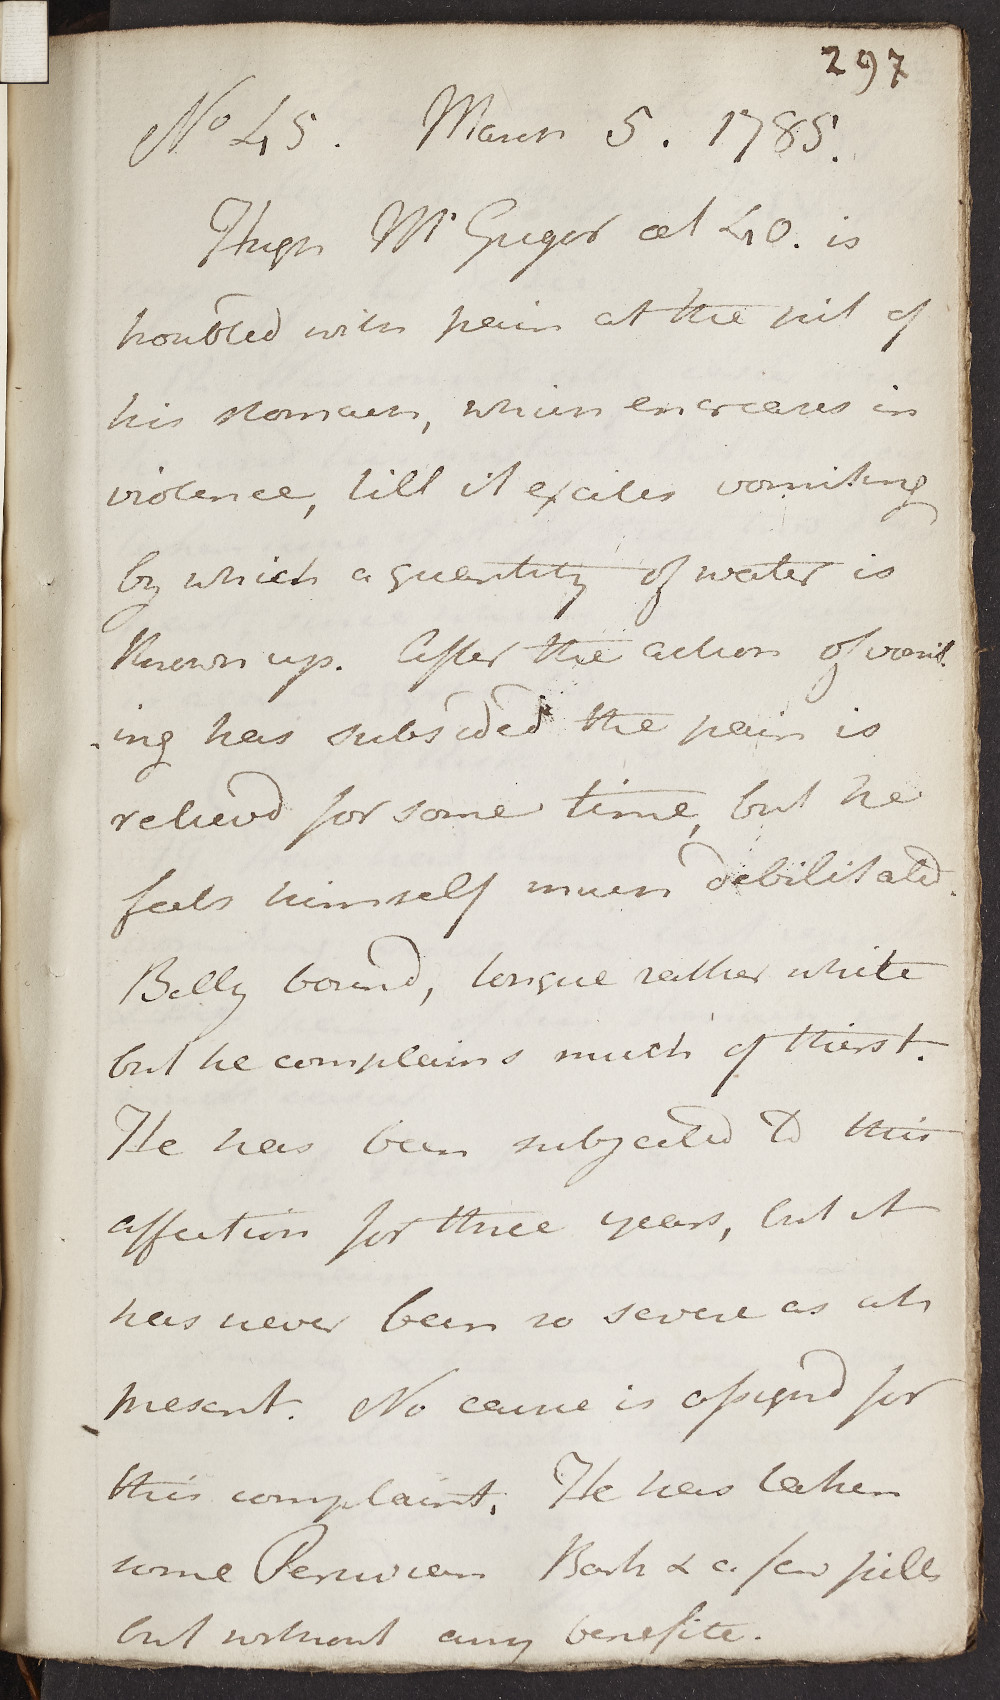 297
No 45. March 5. 1785.
Hugh Mr Gregor aet 40. is
troubled with pain at the pit of
his stomach, which encreases in
violence, till it excites vomiting
by which a quantity of water is
thrown up. After the action of vomit.
-ing has subsided the pain is
relievd for some time, but he
feels himself much debilitated.
Belly bound, tongue rather white
but he complains much of thirst.
He has been subjected to this
affection for three years, but it
has never been so severe as at
present. No cause is assignd for
this complaint. He has taken
some Peruvian Bark & a few pills
but without any benefite.